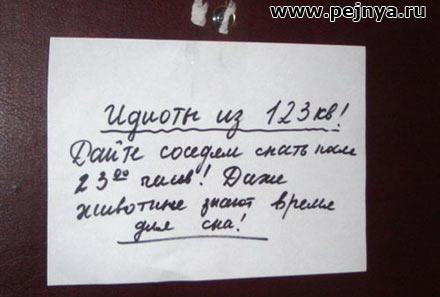 www.pejnya.ru
Идиоты из 123кв!
Дайте соседям спать после
23⁰⁰ часов! Даже
животные знают время
для сна!